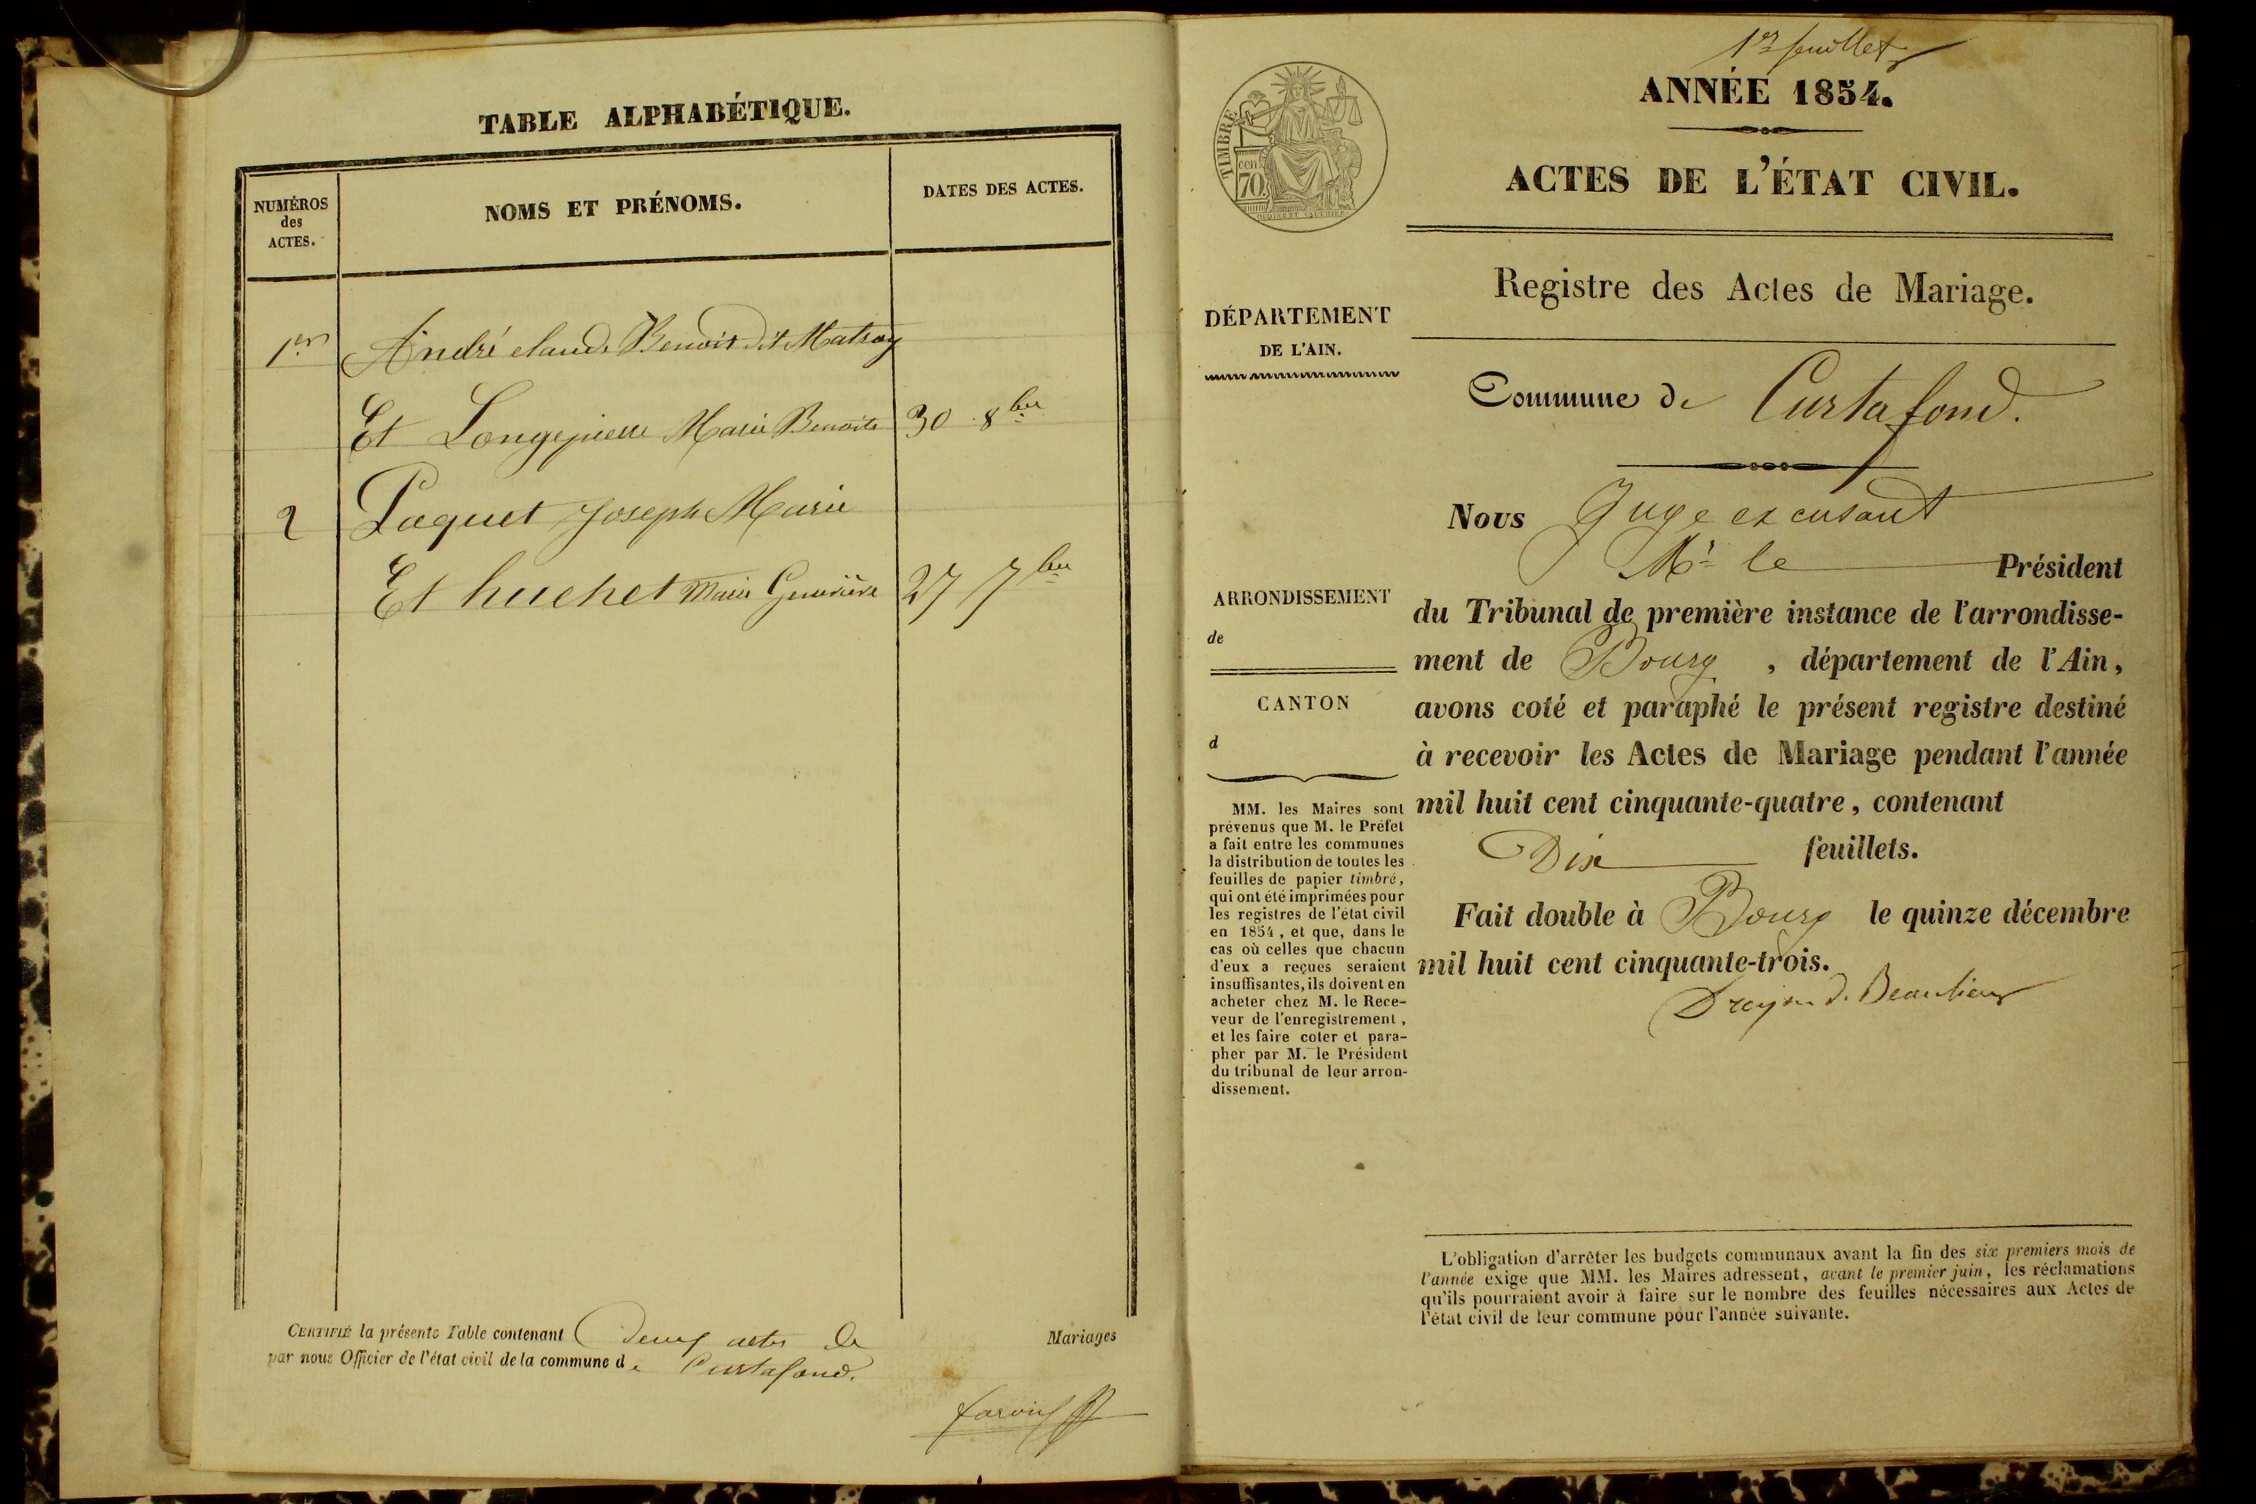 TABLE ALPHABÉTIQUE.
NUMÉROS
des
ACTES.
NOMS ET PRÉNOMS.
DATES DES ACTES.
1er André claude Benoit dit Matray
Et Longepierre Marie Benoite 30 8bre
2 Paquet Joseph Marie
Et huchet Marie Geneviève 27 7bre
CERTIFIÉ la présente Table contenant Deux actes de Mariages
par nous Officier de l'état civil de la commune de Curtafond.
1er feuillet
ANNÉE 1854.
ACTES DE L'ÉTAT CIVIL.
TIMBRE
cen
70
Registre des Actes de Mariage.
DÉPARTEMENT
DE L'AIN.
Commune de Curtafond.
Nous Juge excusant
Mr le Président
du Tribunal de première instance de l'arrondisse-
ment de Bourg, département de l'Ain,
avons coté et paraphé le présent registre destiné
à recevoir les Actes de Mariage pendant l'année
mil huit cent cinquante-quatre, contenant
Dix feuillets.
Fait double à Bourg le quinze décembre
mil huit cent cinquante-trois.
de Beaulieu
ARRONDISSEMENT
de
CANTON
d
MM. les Maires sont
prévenus que M. le Préfet
a fait entre les communes
la distribution de toutes les
feuilles de papier timbré,
qui ont été imprimées pour
les registres de l'état civil
en 1854, et que, dans le
cas où celles que chacun
d'eux a reçues seraient
insuffisantes, ils doivent en
acheter chez M. le Rece-
veur de l'enregistrement,
et les faire coter et para-
pher par M. le Président
du tribunal de leur arron-
dissement.
L'obligation d'arrêter les budgets communaux avant la fin des six premiers mois de
l'année exige que MM. les Maires adressent, avant le premier juin, les réclamations
qu'ils pourraient avoir à faire sur le nombre des feuilles nécessaires aux Actes de
l'état civil de leur commune pour l'année suivante.